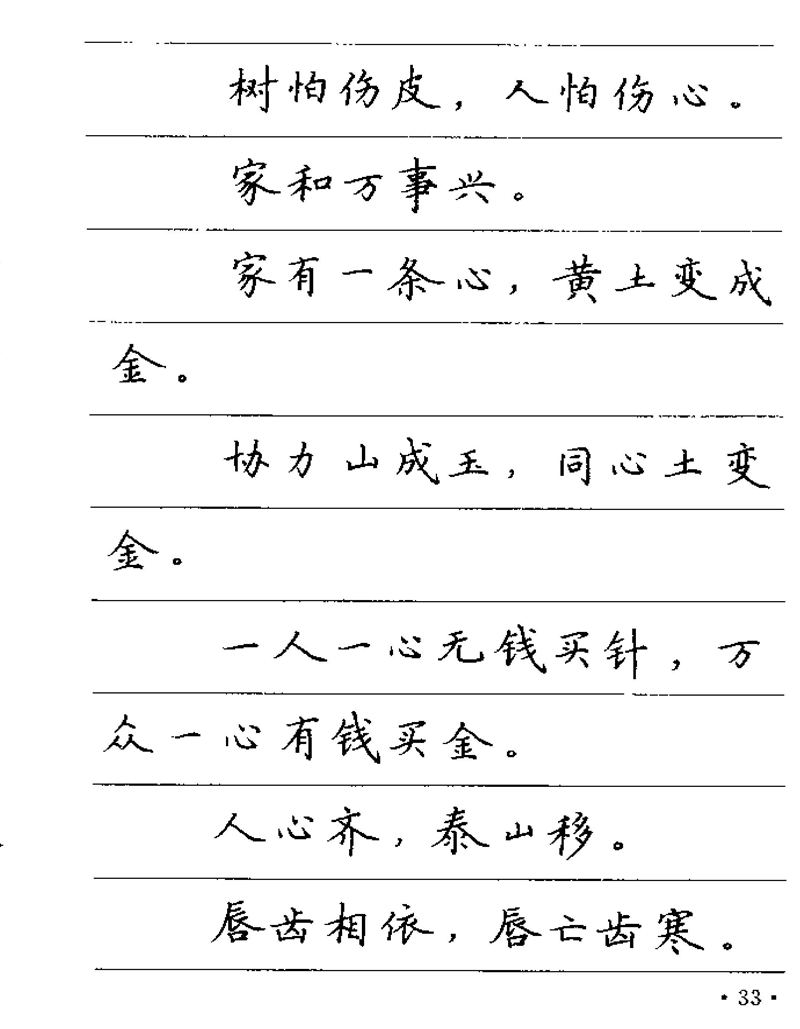 树怕伤皮，人怕伤心。
家和万事兴。
家有一条心，黄土变成
金。
协力山成玉，同心土变
金。
一人一心无钱买针，万
众一心有钱买金。
人心齐，泰山移。
唇齿相依，唇亡齿寒。
·33·